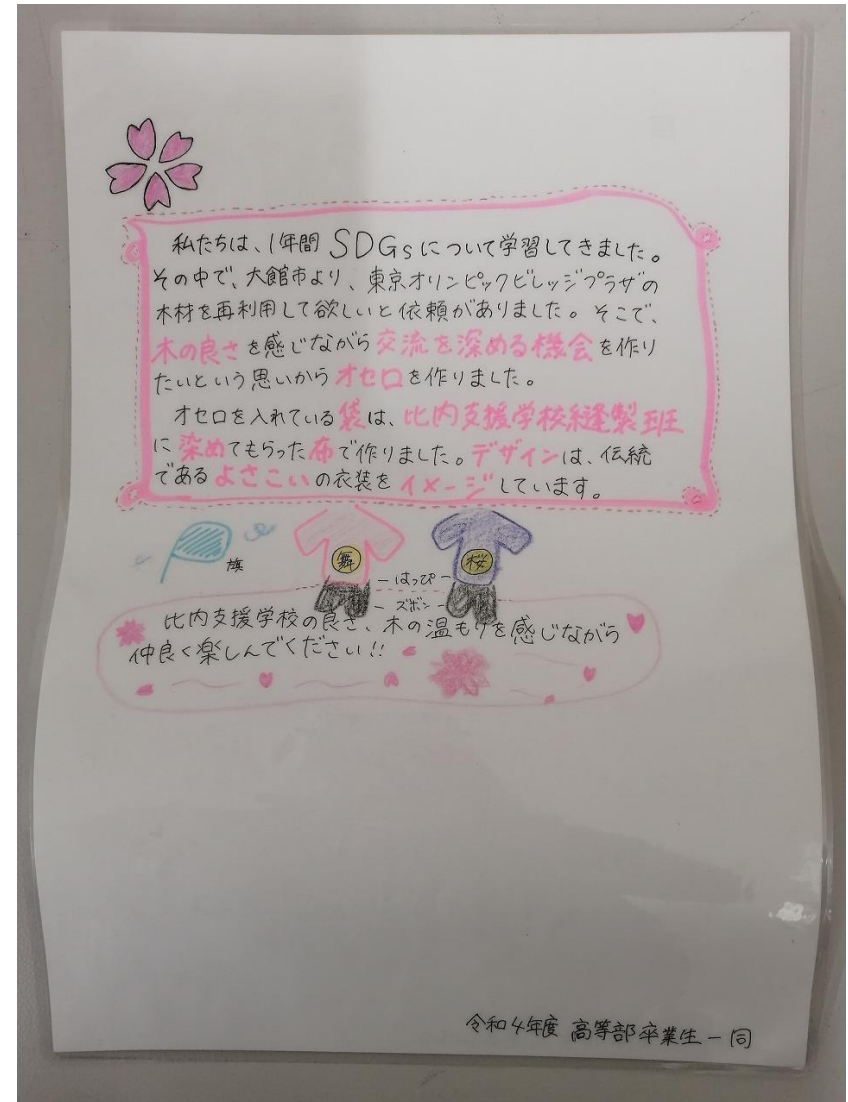 私たちは、1年間SDGsについて学習してきました。
その中で、大館市より、東京オリンピックビレッジプラザの
木材を再利用して欲しいと依頼がありました。そこで、
木の良さを感じながら交流を深める機会を作り
たいという思いからオセロを作りました。
オセロを入れている袋は、比内支援学校縫製班
に染めてもらった布で作りました。デザインは、伝統
であるよさこいの衣装をイメージしています。
旗
舞
桜
ーはっぴー
ーズボンー
比内支援学校の良さ、木の温もりを感じながら
仲良く楽しんでください!!
令和4年度 高等部卒業生一同